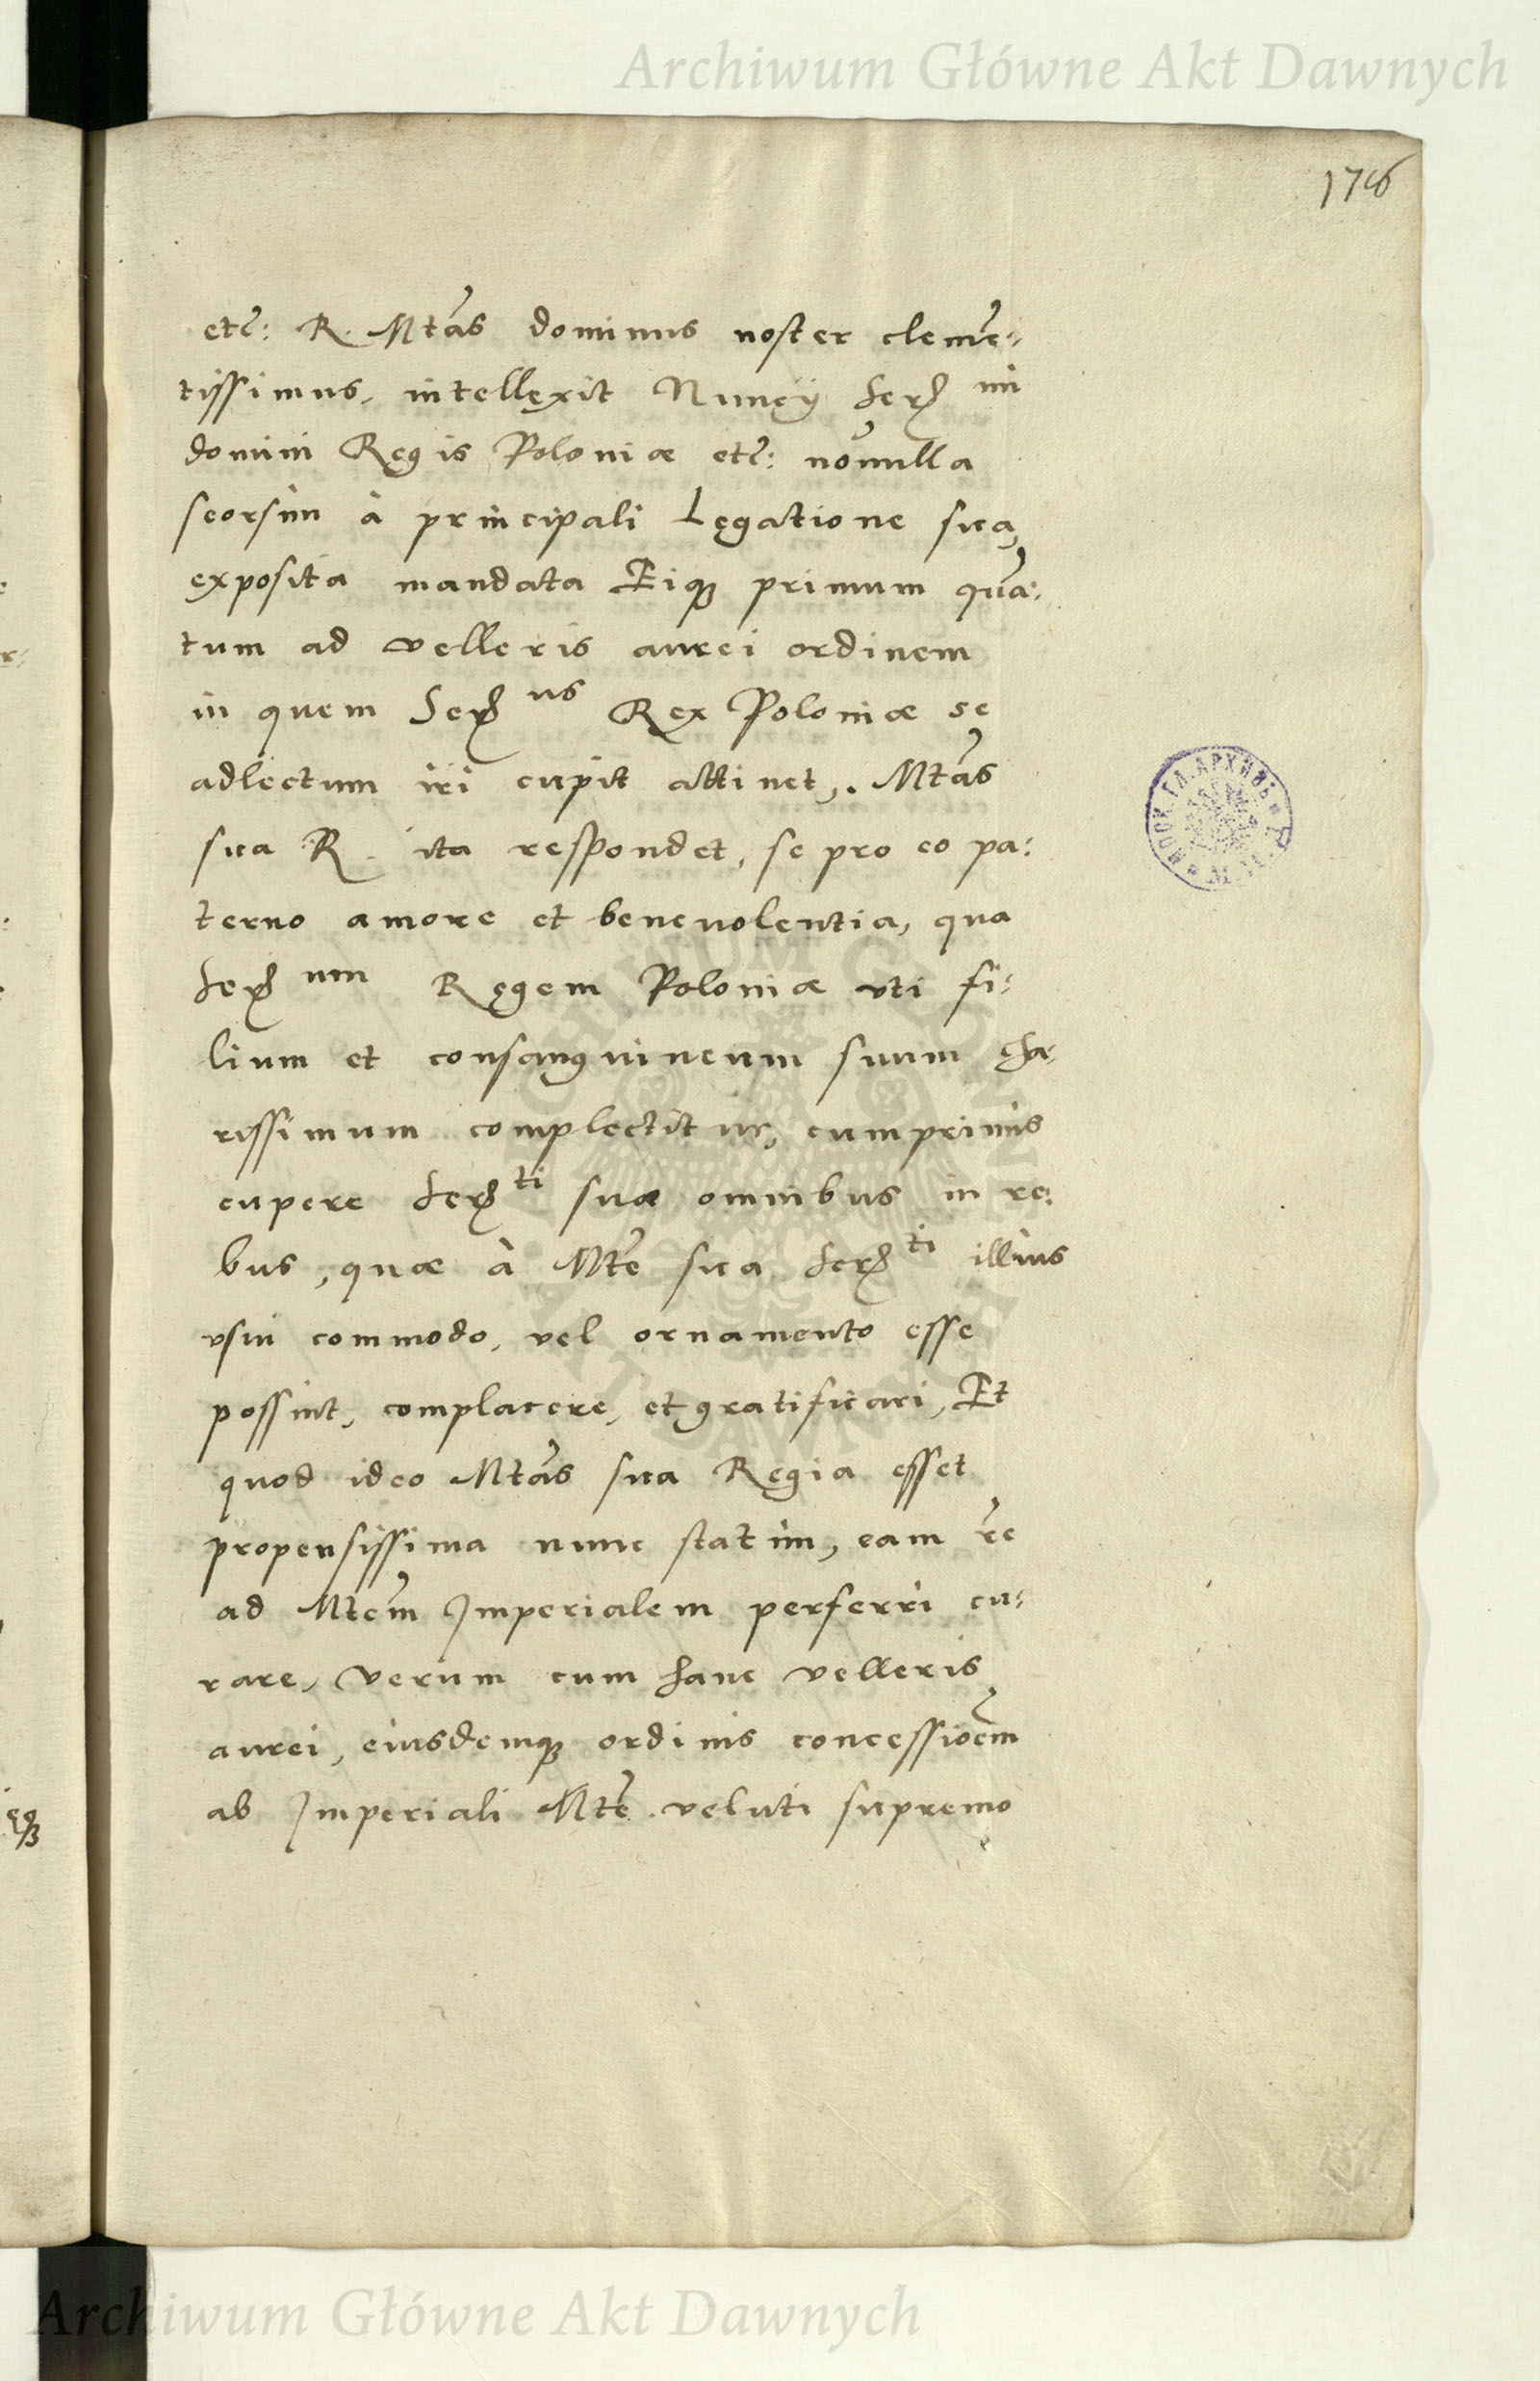 Archiwum Główne Akt Dawnych
176
etc̃: R. Mtãs dominus noster clemẽ-
tissimus, intellexit Nuncÿ Ser mi
domini Regis Poloniæ etc̃: nõnulla
seorsim à principali Legatione sua,
exposita mandata Eiq3 primum quã:
tum ad velleris aurei ordinem
in quem Ser us Rex Poloniæ se
adlectum iri cupit attinet,. Mtãs
sua R. ita respondet, se pro eo pa:
terno amore et beneuolentia, qua
Ser um Regem Poloniæ vti fi:
lium et consanguineum suum cha-
rissimum complectitur, cumprimis
cupere Ser ti suæ omnibus in re:
bus, quæ à Mtẽ sua Ser ti illius
vsui commodo, vel ornamento esse
possint, complacere, et gratificari, Et
quod ideo Mtãs sua Regia esset
propensissima nunc statim, eam rẽ
ad Mtẽm Imperialem perferri cu-
rare, Verum cum hanc velleris
aurei, eiusdemq3 ordinis concessioẽm
ab Imperiali Mtẽ veluti supremo
Archiwum Główne Akt Dawnych